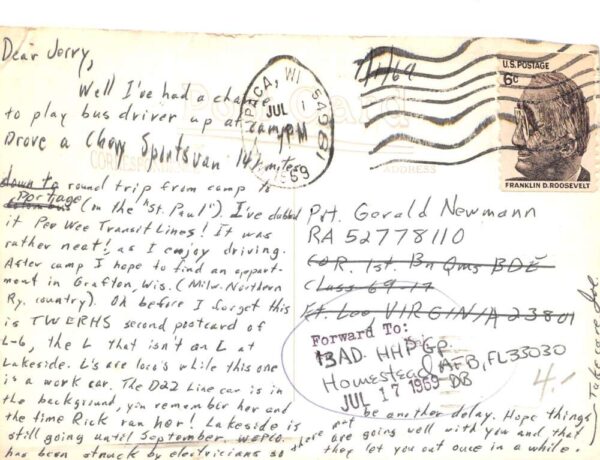 Dear Jerry,
Well I've had a chance
to play bus driver up at camp.
Drove a Chevy Sportsvan 141 miles
down to round trip from camp to
Columbus Portage (on the "St. Paul"). I've dubbed
it Pee Wee Transit Lines! It was
rather neat! as I enjoy driving.
After camp I hope to find an appart-
ment in Grafton, Wis. (Milw. Northern
Ry. country). Oh before I forget this
is TWERHS second postcard of
L-6, the L that isn't an L at
Lakeside. L's are loco's while this one
is a work car. The D22 Line car is in
the background, you remember her and
the time Rick ran her! Lakeside is
still going until September. WEPCO.
has been struck by electricians so there
may not be another delay. Hope things
are going well with you and that
they let you out once in a while.
Take care Joe
7/1/69
PACA, WI 54981
JUL 1
PM
1969
U.S. POSTAGE
6¢
FRANKLIN D. ROOSEVELT
Post Card
CORRESPONDENCE
ADDRESS
Pvt. Gerald Newmann
RA 52778110
COR. 1st. Bn Qms BDE
Class 69-17
Ft. Lee VIRGINIA 23801
Forward To:
BAD. HHB GP.
Homestead AFB, FL 33030
JUL 17 1969 DB
4.-